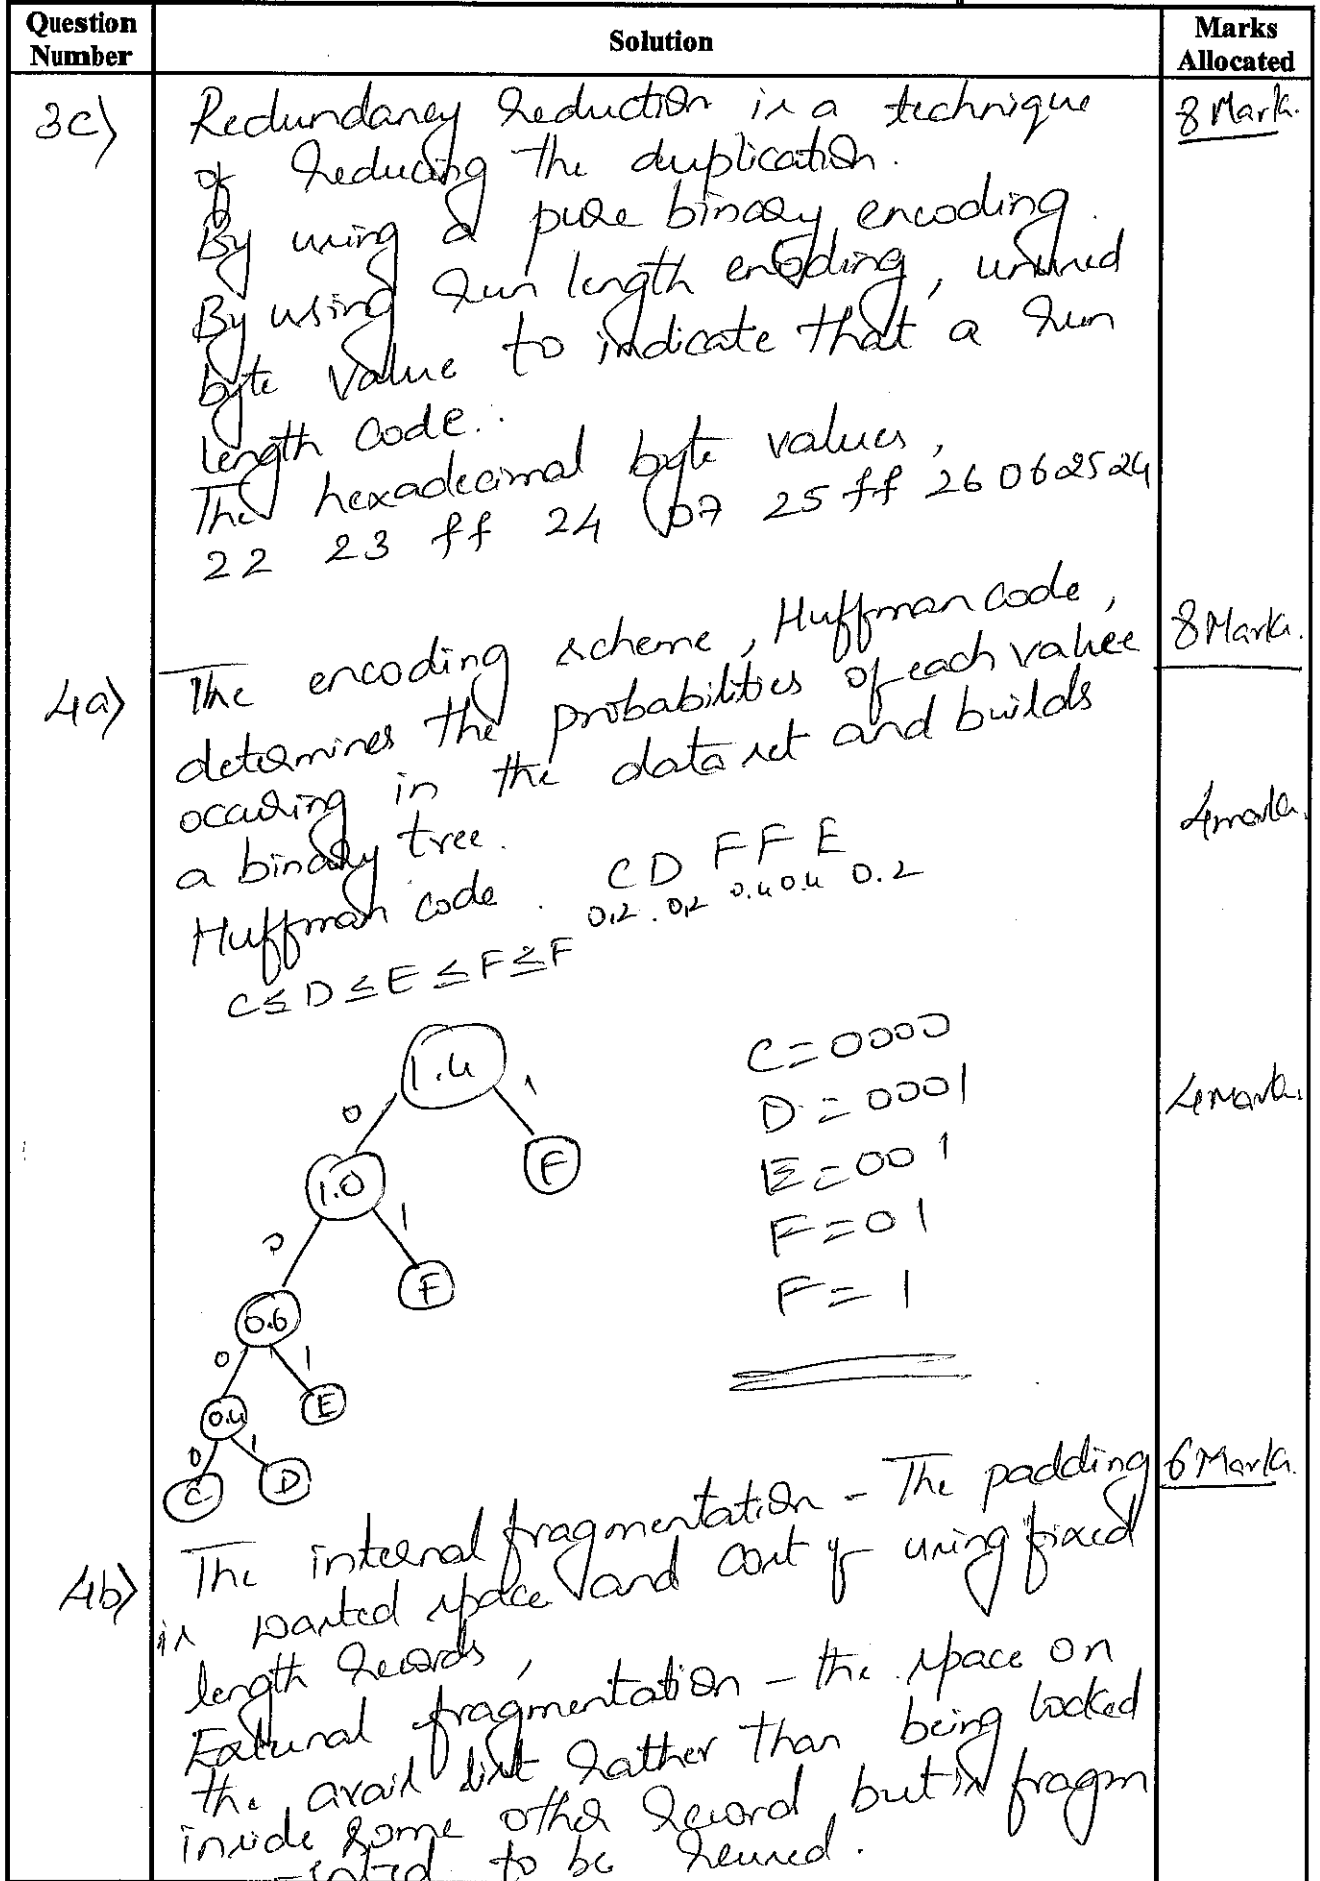 Question Number
Solution
Marks Allocated
3c)
Redundancy reduction is a technique
8 Mark.
of reducing the duplication.
By using a pure binary encoding.
By using run length encoding, unused
byte value to indicate that a run
length code..
The hexadecimal byte values,
22 23 ff 24 07 25 ff 26 06 25 24
4a)
The encoding scheme, Huffman code,
8 Marks.
determines the probabilities of each value
occuring in the data set and builds
a binary tree.
4 marks.
Huffman code. C D F F E
0.2 . 0.2 0.4 0.4 0.2
C ≤ D ≤ E ≤ F ≤ F
1.4
0 1
1.0 F
0 1
0.6 F
0 1
0.4 E
0 1
C D
C = 0000
D = 0001
4 Marks.
E = 001
F = 01
F = 1
4b)
The internal fragmentation - The padding
6 Marks.
is wasted space and cost of using fixed
length records,
External fragmentation - the space on
the avail list rather than being locked
inside some other record, but is fragm
-ented to be reused.